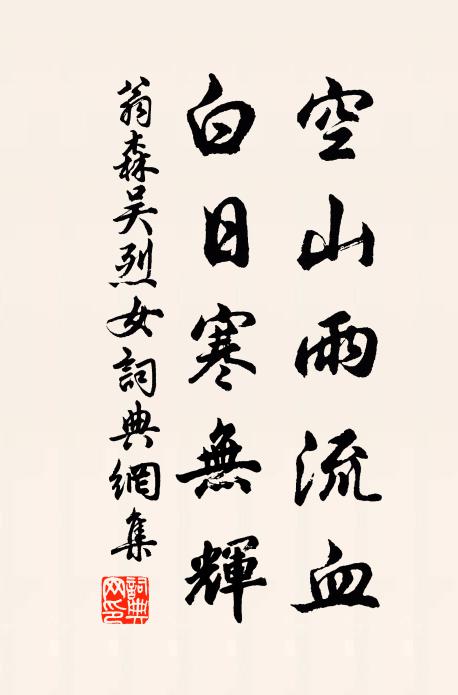 空山雨流血
白日寒無輝
翁森吴烈女詞典網集
詞典网印